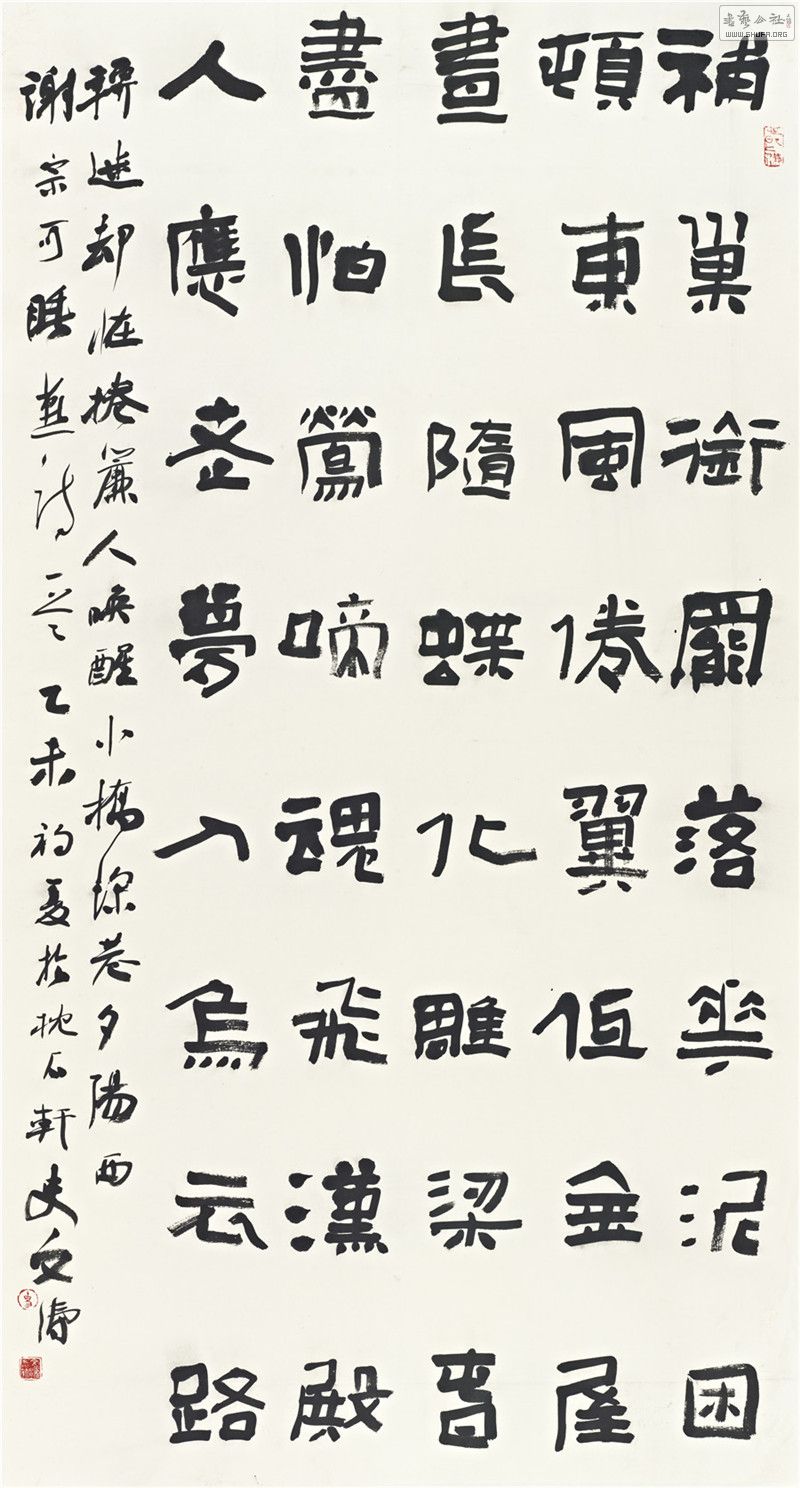 書藝公社
WWW.SHUFA.ORG
補巢銜罷落華泥困
頓東風倦翼低金屋
晝長隨蝶化雕梁春
盡怕鶯啼魂飛漢殿
人應老夢入烏云路
轉迷却恠捲簾人喚醒小橋深巷夕陽西
謝宗可睡燕詩一首乙未初夏於枕石軒